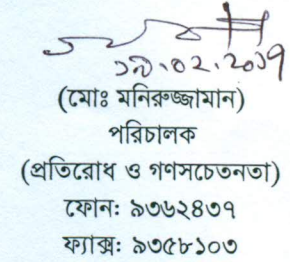 ১৯.০২.২০১৭
(মোঃ মনিরুজ্জামান)
পরিচালক
(প্রতিরোধ ও গণসচেতনতা)
ফোনঃ ৯৩৬২৪৩৭
ফ্যাক্সঃ ৯৩৫৮১০৩